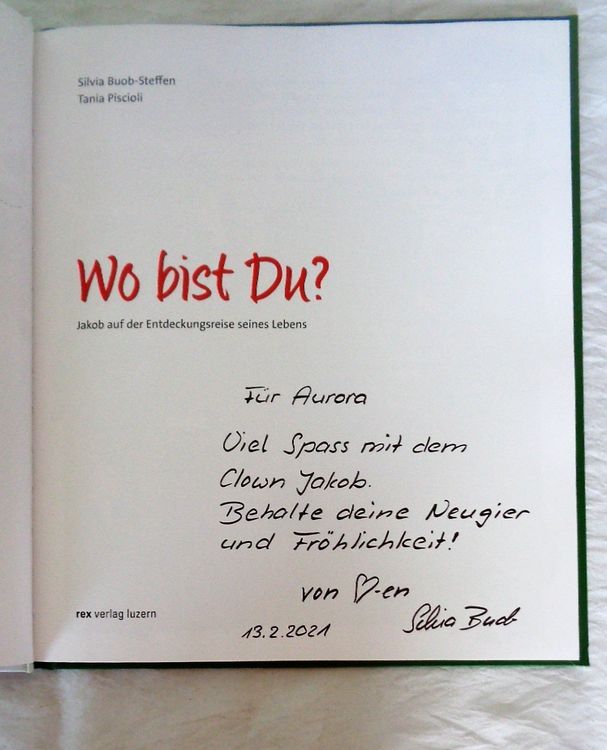 Silvia Buob-Steffen
Tania Piscioli
Wo bist Du?
Jakob auf der Entdeckungsreise seines Lebens
Für Aurora
Viel Spass mit dem
Clown Jakob.
Behalte deine Neugier
und Fröhlichkeit!
von ♡-en
Silvia Buob
13.2.2021
rex verlag luzern